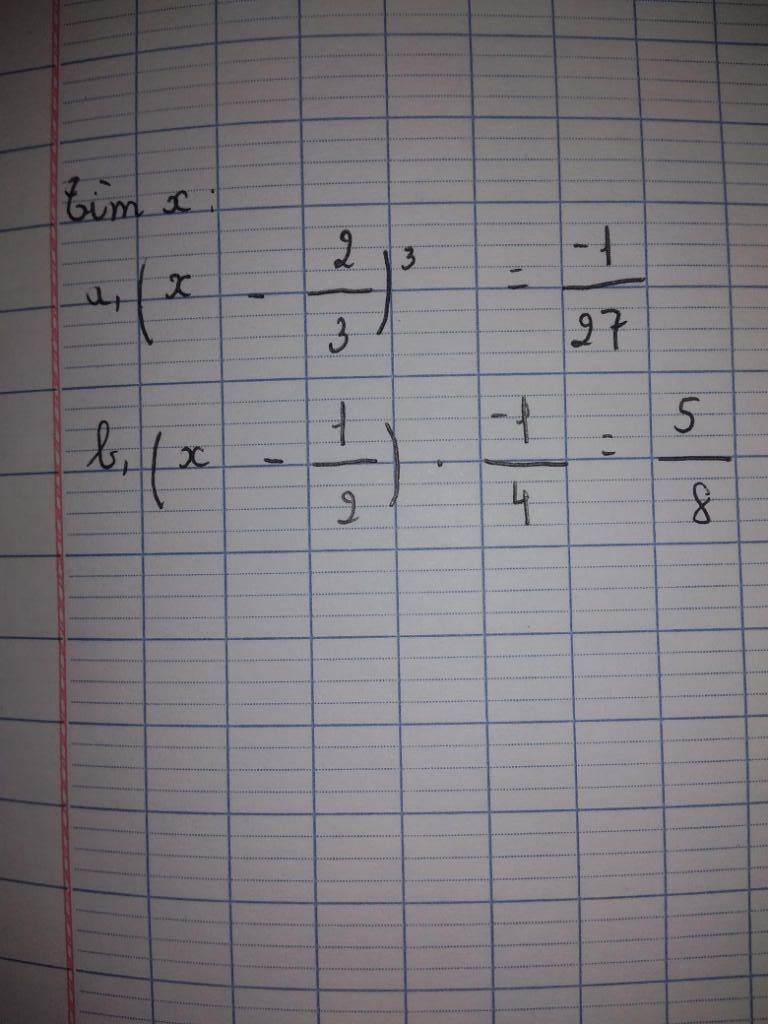 tìm x :
a, (x - 2/3)³ = -1/27
b, (x - 1/2) . -1/4 = 5/8